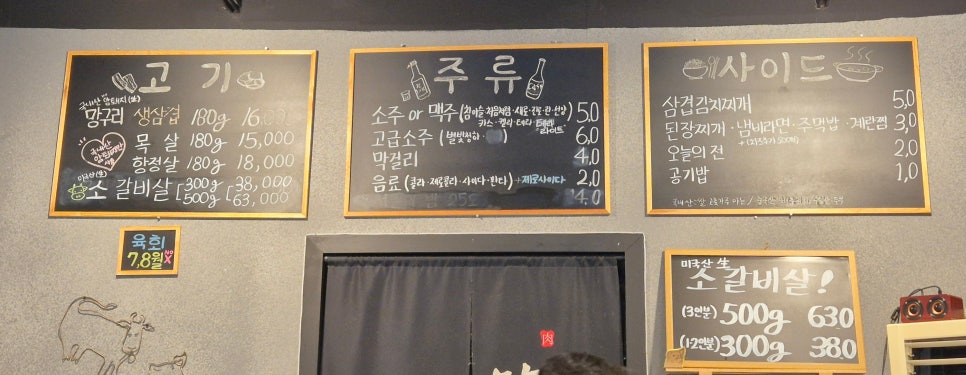 고기
국내산 암퇘지(生)
망구리 생삼겹 180g 16
국내산 암퇘지만 사용
목살 180g 15,000
항정살 180g 18,000
미국산(生)
소 갈비살 [300g [38,000
500g 63,000
주류
소주 or 맥주 5.0
카스·켈리·테라·
고급소주 (별빛청하· 6.0
막걸리 4.0
음료 (콜라·제로콜라·사이다·환타) + 제로사이다 2.0
4.0
사이드
삼겹김치찌개 5.0
된장찌개·냄비라면·주먹밥·계란찜 3.0
오늘의 전 2.0
공기밥 1.0
육회
7,8월 X
미국산 生
소갈비살!
(3인분) 500g 63.0
(1-2인분) 300g 38.0
肉